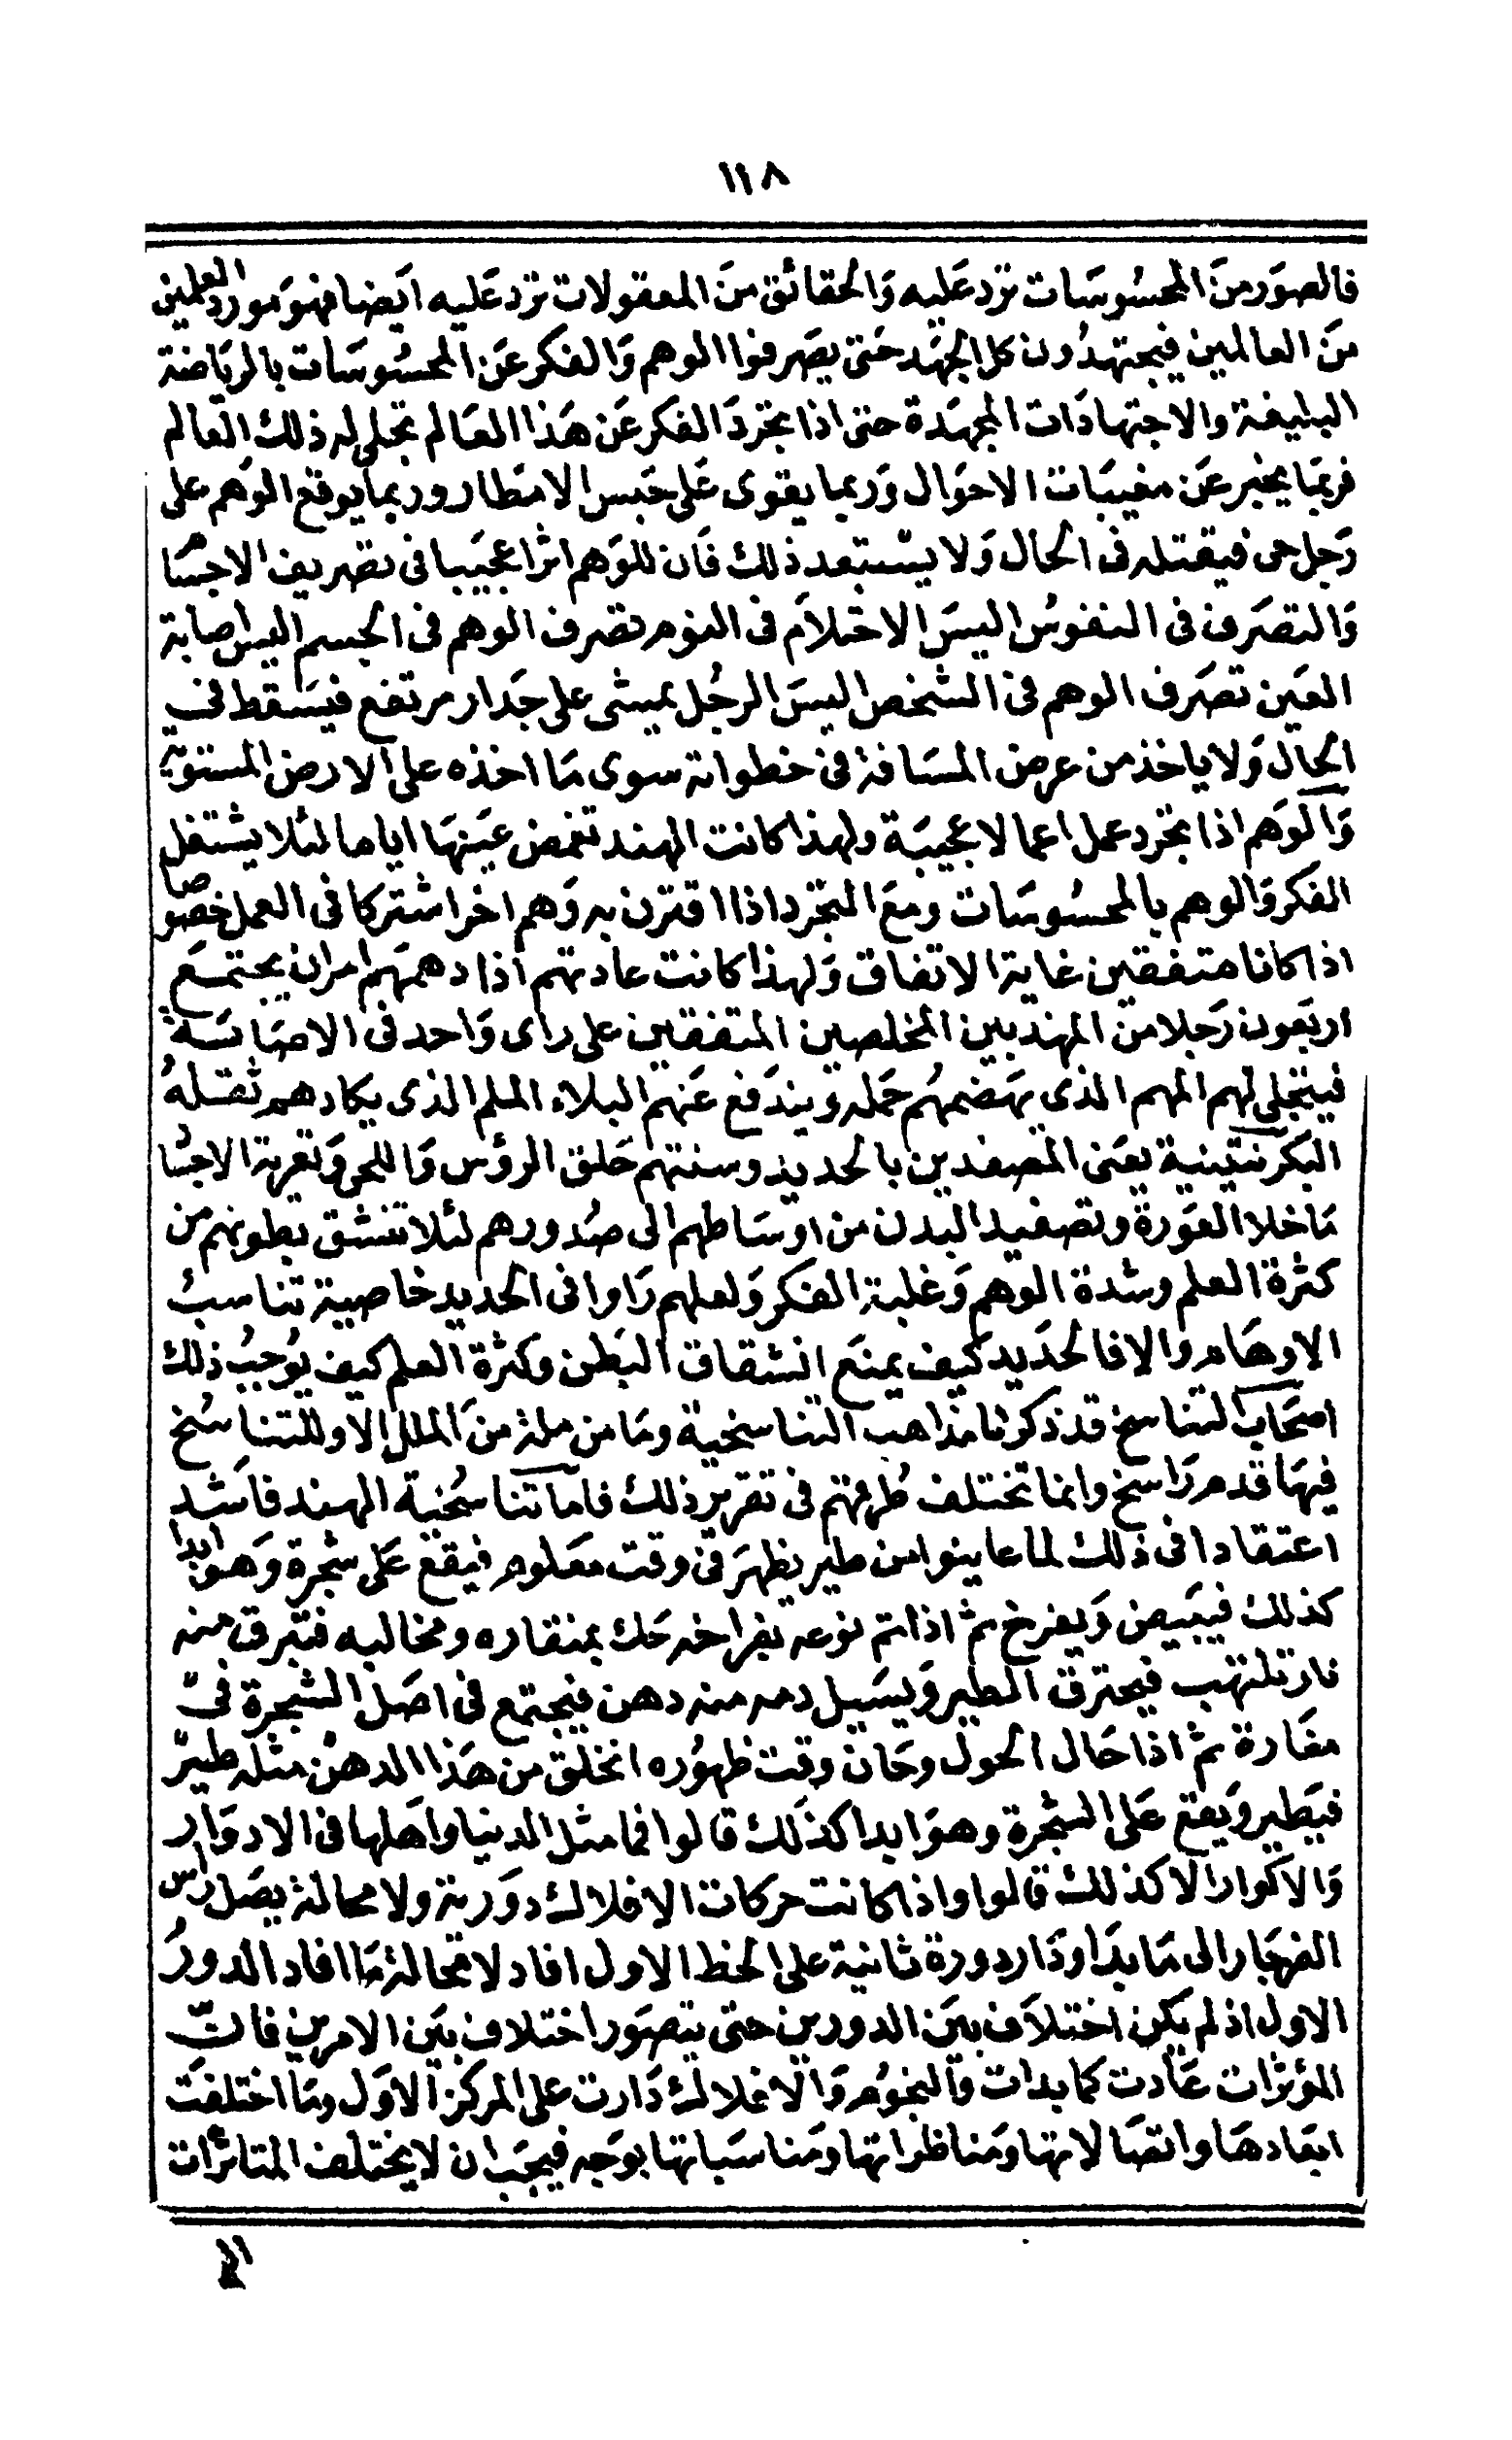 ١١٨
فالصور من المحسوسات ترد عليه والحقائق من المعقولات ترد عليه ايضا فهو مورد العلمين
من العالمين فيجتهدون كل الجهد حتى يصرفوا الوهم والفكر عن المحسوسات بالرياضة
البليغة والاجتهادات المجهدة حتى اذا تجرد الفكر عن هذا العالم تجلى له ذلك العالم
فربما يخبر عن مغيبات الاحوال وربما يقوى على حبس الامطار وربما يوقع الوهم على
رجل حى فيقتله فى الحال ولا يستبعد ذلك فان للوهم اثرا عجيبا فى تصريف الاجسام
والتصرف فى النفوس اليس الاحتلام فى النوم تصرف الوهم فى الجسم اليس اصابة
العين تصرف الوهم فى الشخص اليس الرجل يمشى على جدار مرتفع فيسقط فى
الحال ولا ياخذ من عرض المسافة فى خطواته سوى ما اخذه على الارض المستوية
والوهم اذا تجرد عمل اعمالا عجيبة ولهذا كانت الهند تغمض عينها اياما لئلا يشتغل
الفكر والوهم بالمحسوسات ومع التجرد اذا اقترن به وهم اخر اشتركا فى العمل خصوصا
اذا كانا متفقين غاية الاتفاق ولهذا كانت عادتهم اذا دهمهم امران يجتمع
اربعون رجلا من المهذبين المخلصين المتفقين على راى واحد فى الاصابة
فيتجلى لهم المهم الذي يهضمهم حمله ويندفع عنهم البلاء الملم الذى يكادهم ثقله
البكرنتينية يعنى المصفدين بالحديد وسنتهم حلق الرؤس واللحى وتعرية الاجسام
ما خلا العورة وتصفيد البدن من اوساطهم الى صدورهم لئلا تنشق بطونهم من
كثرة العلم وشدة الوهم وغلبة الفكر ولعلهم راوا فى الحديد خاصية تناسب
الاوهام والا فالحديد كيف يمنع انشقاق البطن وكثرة العلم كيف يوجب ذلك
اصحاب التناسخ قد ذكرنا مذاهب التناسخية وما من ملة من الملل الا وللتناسخ
فيها قدم راسخ وانما تختلف طرقهم فى تقرير ذلك فاما تناسخية الهند فاشد
اعتقادا فى ذلك لما عاينوا من طير يظهر فى وقت معلوم فيقع على شجرة وهو ابدا
كذلك فيبيض ويفرخ ثم اذا تم نوعه بفراخه حك بمنقاره ومخالبه فتبرق منه
نار تلتهب فيحترق الطير ويسيل دمه منه دهن فيجتمع فى اصل الشجرة فى
مغارة ثم اذا حال الحول وحان وقت ظهوره انخلق من هذا الدهن مثله طير
فيطير ويقع على الشجرة وهو ابدا كذلك قالوا فما مثل الدنيا واهلها فى الادوار
والاكوار الا كذلك قالوا واذا كانت حركات الافلاك دورية ولا محالة يصل راس
الفرجار الى ما بدا ودار دورة ثانية على الخط الاول افاد لا محالة ما افاد الدور
الاول اذ لم يكن اختلاف بين الدورين حتى يتصور اختلاف بين الامرين فان
المؤثرات عادت كما بدات والنجوم والافلاك دارت على المركز الاول وما اختلفت
ابعادها واتصالاتها ومناظراتها ومناسباتها بوجه فيجب ان لا يختلف المتاثرات